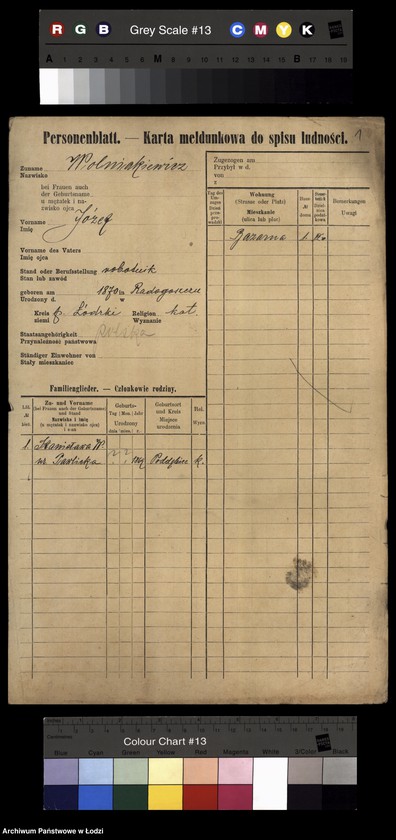 R G B Grey Scale #13 C M Y K
A 1 2 3 4 5 6 M 8 9 10 11 12 13 14 15 B 17 18 19
Personenblatt. — Karta meldunkowa do spisu ludności. 1
Zuname Wolniakiewicz
Nazwisko
bei Frauen auch
der Geburtsname
u mężatek i na-
zwisko ojca
Vorname Józef
Imię
Vorname des Vaters
Imię ojca
Stand oder Berufsstellung robotnik
Stan lub zawód
geboren am 1870 in Radogoszczu
Urodzony d. w
Kreis p. Łódzki Religion kat.
ziemi Wyznanie
Staatsangehörigkeit polska
Przynależność państwowa
Ständiger Einwohner von
Stały mieszkaniec
Zugezogen am
Przybył w d.
von
z
Wohnung
(Strasse oder Platz)
Mieszkanie
(ulica lub plac)
Bemerkungen
Uwagi
Bazarna 1.
Familienglieder. — Członkowie rodziny.
Zu- und Vorname
(bei Frauen auch der Geburtsname)
und Stand
Nazwisko i imię
(u mężatek i nazwisko ojca)
i stan
Geburts-
Tag Mon. Jahr
Urodzony
Geburtsort
und Kreis
Miejsce
urodzenia
Rel.
Wyzn
1. Stanisława W.
Pawlicka Poddębice k.
Centimetres
Colour Chart #13
Blue Cyan Green Yellow Red Magenta White 3/Color Black
Archiwum Państwowe w Łodzi